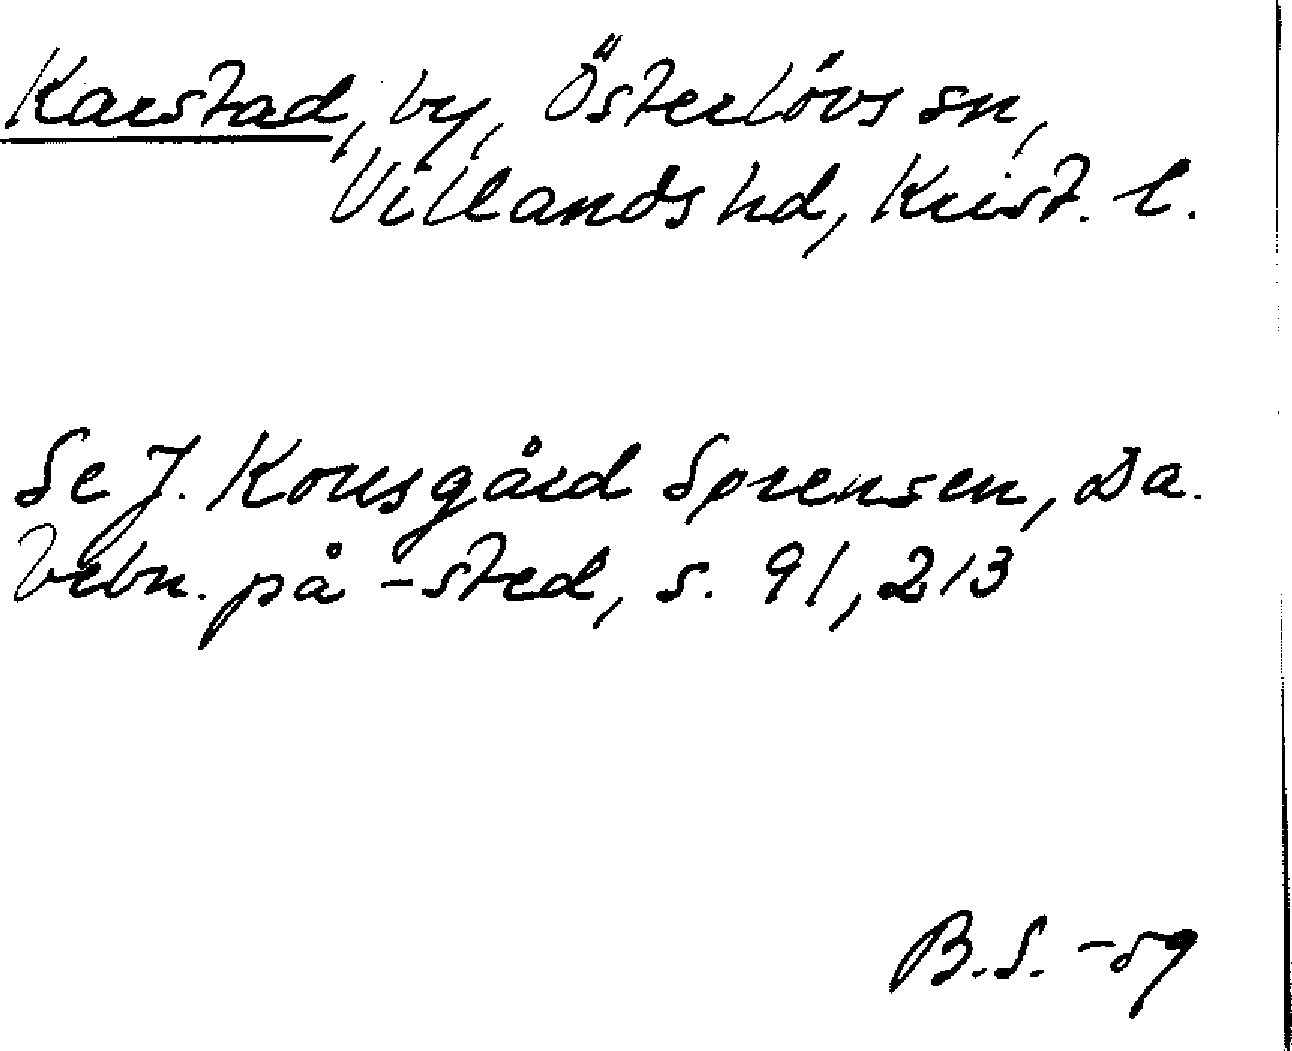 Karstad, by, Österlövs sn,
Villands hd, Krist. l.
Se J. Kousgård Sørensen, Da.
bebn. på -sted, s. 91, 213
B.S. -59